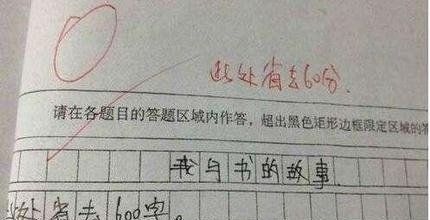 此处省去60分.
请在各题目的答题区域内作答，超出黑色矩形边框限定区域的答
我与书的故事.
此处省去600字。